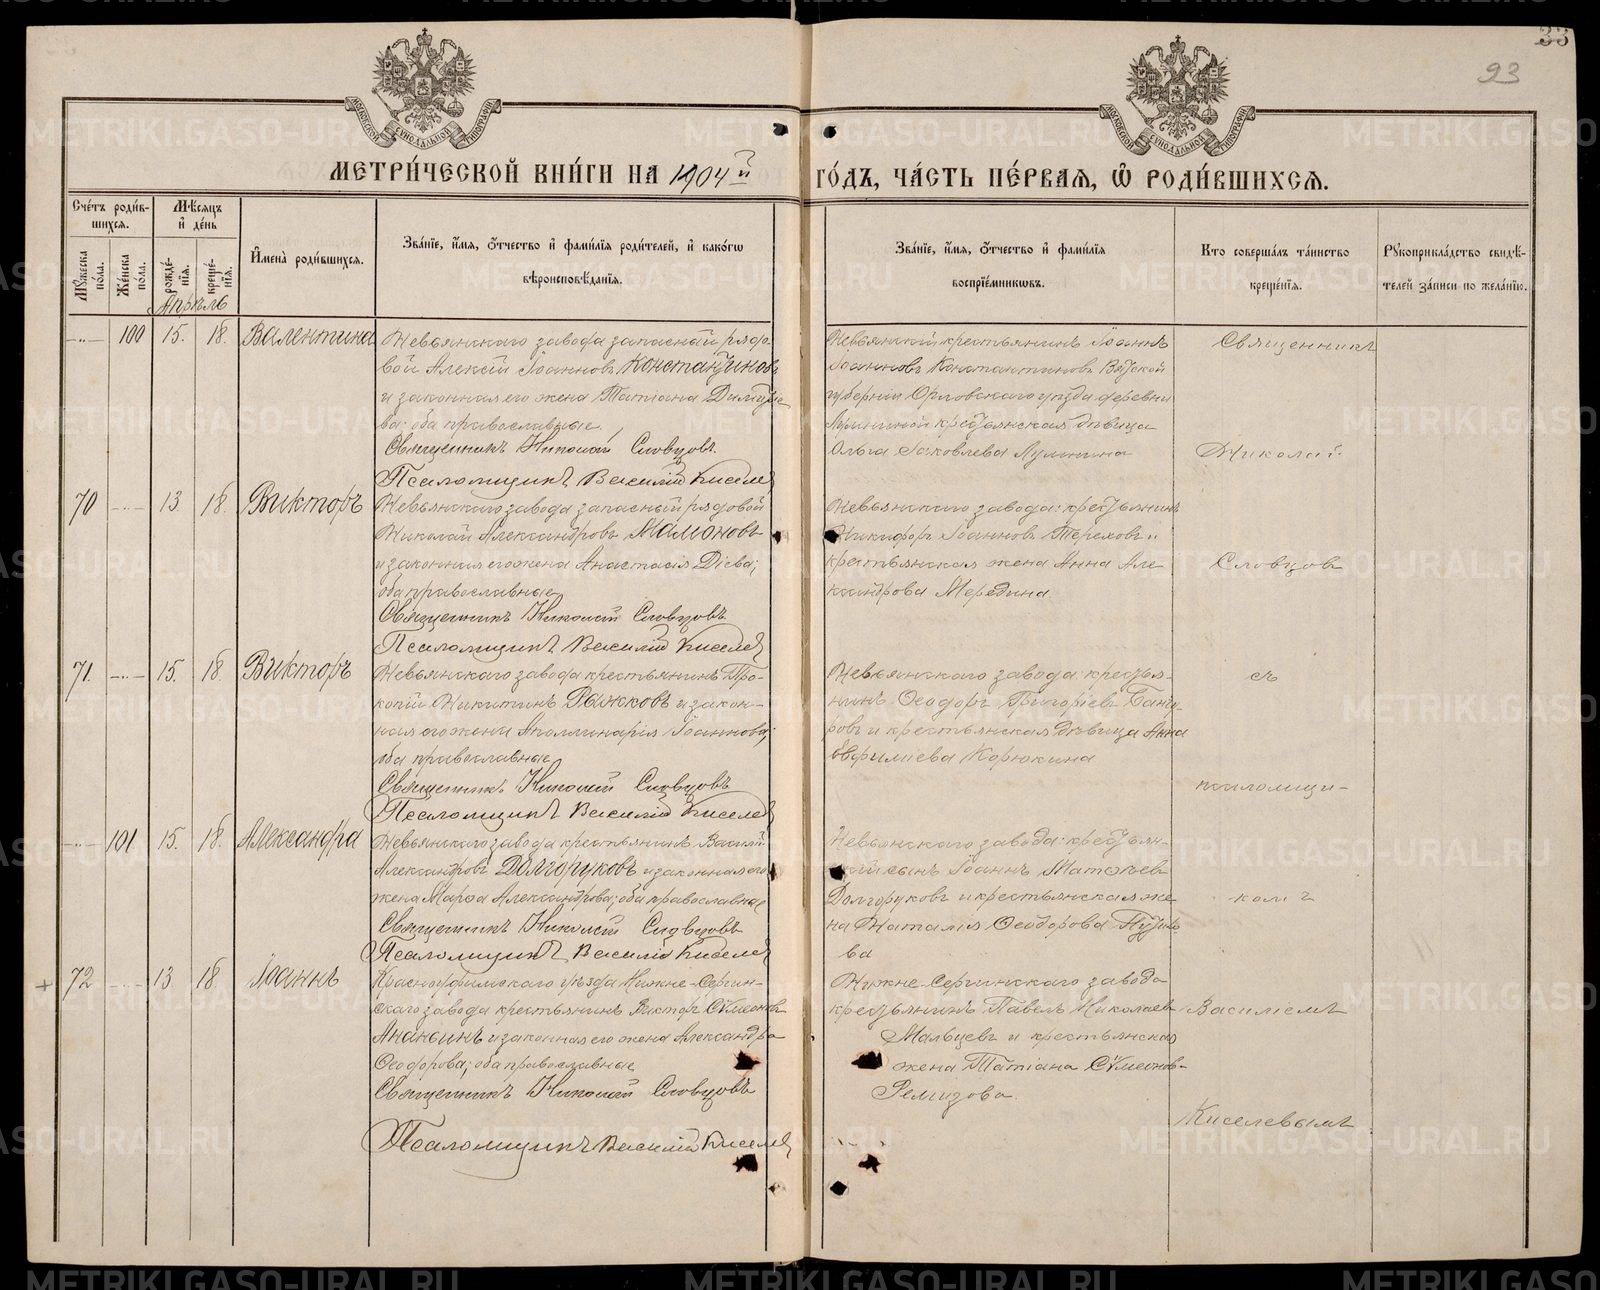 33
93
МЕТРИ́ЧЕСКОЙ КНИ́ГИ НА 1904й ГО́ДЪ, ЧА́СТЬ ПЕ́РВАѦ, Ѡ РОДИ́ВШИХСѦ.
Сче́тъ роди́в-
шихсѧ.
Мѣ́сѧцъ
и҆ де́нь
Мꙋ́жеска по́ла.
Же́нска по́ла.
рожде́-
нїѧ.
креще́-
нїѧ.
И҆мена̀ роди́вшихсѧ.
Зва́нїе, и҆́мѧ, ѻ҆́тчество и҆ фами́лїѧ роди́телей, и҆ како́гѡ
вѣроисповѣ́данїѧ.
Зва́нїе, и҆́мѧ, ѻ҆́тчество и҆ фами́лїѧ
воспрїе́мникѡвъ.
Кто соверша́лъ та́инство
креще́нїѧ.
Рꙋкоприкла́дство свидѣ́-
телей за́писи по жела́нїю.
Апрѣль
100 15. 18. Валентина
Невьянскаго завода запасный рядо-
вой Алексѣй Іоанновъ Константиновъ
и законная его жена Татіана Димитріе-
ва; оба православные.
Священникъ Николай Словцовъ.
Псаломщикъ Василій Киселев
Невьянскій крестьянинъ Іоаннъ
Іоанновъ Константиновъ Вятской
губерніи Орловскаго уѣзда деревни
крестьянская дѣвица
Ольга Іаковлева Лумпина
Священникъ
Николай
70 13. 18. Викторъ
Невьянскаго завода запасный рядовой
Николай Александровъ Мамоновъ
и законная его жена Анастасія Діева;
оба православные
Священникъ Николай Словцовъ.
Псаломщикъ Василій Киселев
Невьянскаго завода: крестьянинъ
Никифоръ Іоанновъ Тереховъ и
крестьянская жена Анна Але-
ксандрова Мередина.
Словцовъ
71. 15. 18. Викторъ
Невьянскаго завода крестьянинъ Про-
копій Никитинъ Рыжковъ и закон-
ная его жена Аполлинарія Іоаннова;
оба православные
Священникъ Николай Словцовъ
Псаломщикъ Василій Киселев
Невьянскаго завода: крестья-
нинъ Ѳеодоръ Григоріевъ
ровъ и крестьянская дѣвица Анна
Евфиміева Корюкина
съ
псаломщи-
101 15. 18. Александра
Невьянскаго завода крестьянинъ Василій
Александровъ Долгоруковъ и законная его
жена Марѳа Александрова; оба православные
Священникъ Николай Словцовъ
Псаломщикъ Василій Киселев
Невьянскаго завода: крестьян-
скій сынъ Іоаннъ Матѳіевъ
Долгоруковъ и крестьянская же-
на Наталія Ѳеодорова
ва
комъ
+ 72 13 18 Іоаннъ
Красноуфимскаго уѣзда Нижне-Сергин-
скаго завода крестьянинъ Викторъ Сѵмеоновъ
Ананьинъ и законная его жена Александра
Ѳеодорова; оба православные
Священникъ Николай Словцовъ
Псаломщикъ Василій Киселев
Нижне-Сергинскаго завода
крестьянинъ Павелъ Николаевъ
Мальцевъ и крестьянская
жена Татіана Сѵмеонов-
Ремизова.
Василіемъ
Киселевымъ
METRIKI.GASO-URAL.RU